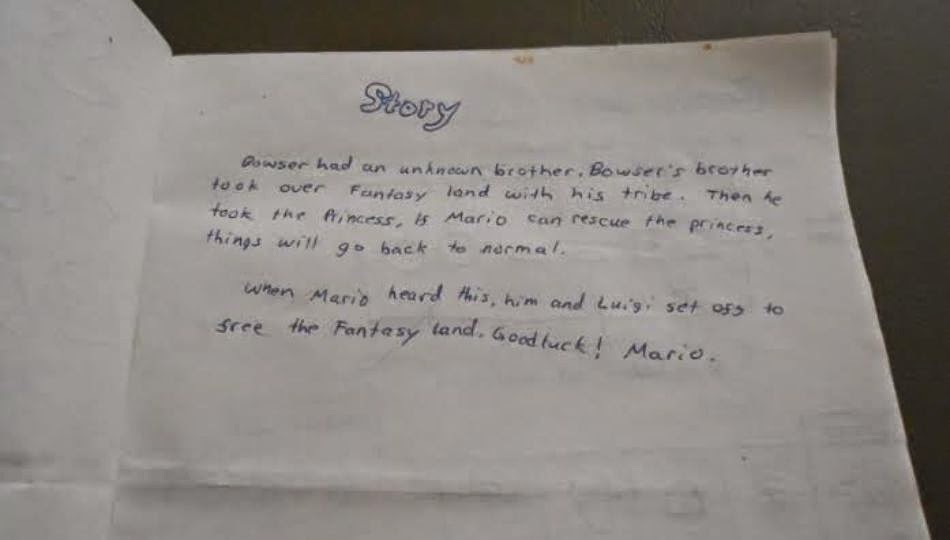 Story
Bowser had an unknown brother. Bowser's brother
took over Fantasy land with his tribe. Then he
took the Princess, If Mario can rescue the princess,
things will go back to normal.
When Mario heard this, him and Luigi set off to
free the Fantasy land. Good luck! Mario.